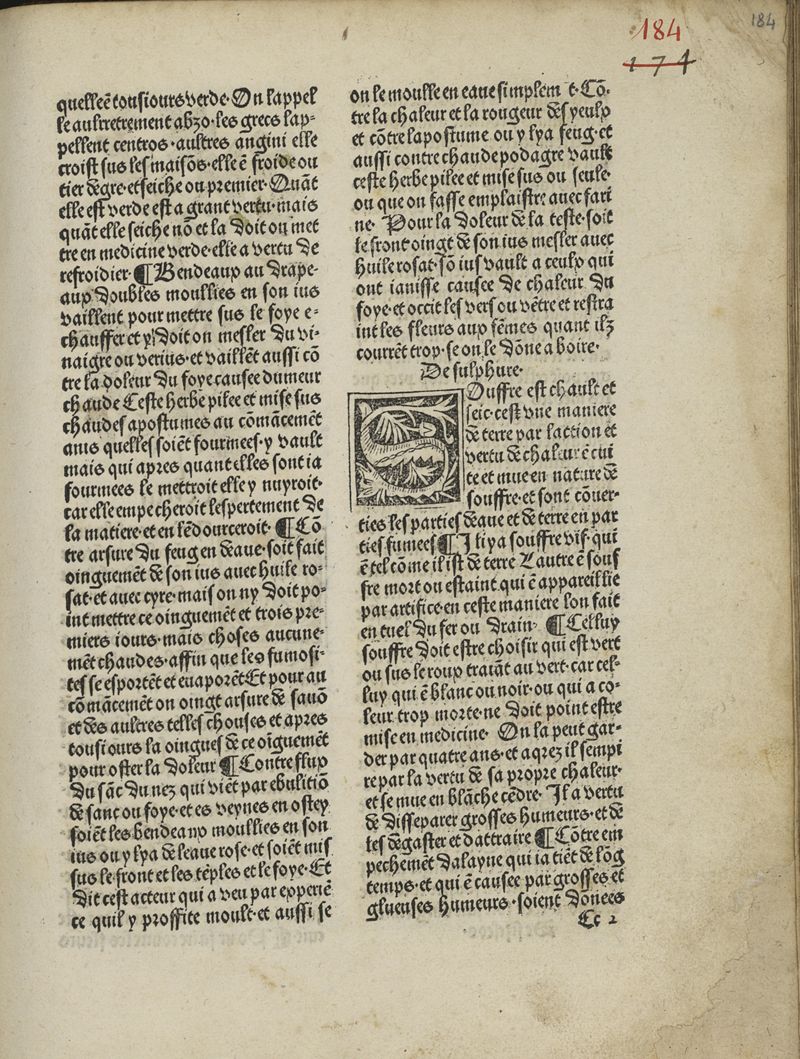 184
184
174
quelleẽ tousiours verde· On lappel
le aultretrement abzo·les grecs lap-
pellent centros·aultres angini elle
croist sus les maisõs·elle ẽ froide ou
tier degre·et seiche ou premier·Quãt
elle est verde est a grant vertu·mais
quãt elle seiche nõ et la doit on met
tre en medicine verde·elle a vertu de
refroidier·¶ Bendeaux au drape-
aux doubles moullies en son ius
vaillent pour mettre sus le foye e-
chauffer et y doit on mesler du vi-
naigre ou verius·et vaillẽt aussi cõ
tre la doleur du foye causee dumeur
chaude Ceste herbe pilee et mise sus
chaudes apostumes au cõmãcemẽt
ains quelles soiẽt fourmees·y vault
mais qui apres quant elles sont ia
fourmees le mettroit elle y nuyroit·
car elle empecheroit lespertement de
la matiere·et en lẽdourceroit·¶ Cõ
tre arsure du feu gen deaue·soit fait
oinguemẽt de son ius auec huile ro-
sat·et auec cyre·mais on ny doit po-
int mettre ce oinguemẽt et trois pre-
miers iours·mais choses aucune-
mẽt chaudes·affin que les fumosi-
tes se esportẽt et euaporẽt Et pour au
cõmãcemẽt on oingt arsure de sauõ
et des aultres telles chouses et apres
tousiours la oingues de ce oiguemẽt
pour oster la doleur ¶ Contre flup
du sãc du nez qui viẽt par ebulitiõ
de sanc ou foye·et es veynes en ostey
soiẽt les bendeaux moullies en son
ius ou y lya de leaue rose·et soiẽt mis
sus le front et les tẽples et le foye·Et
dit cest acteur qui a veu par experiẽ
ce quil y proffite moult·et aussi se
on le moulle en eaue simplem t·Cõ-
tre la chaleur et la rougeur des yeulx
et cõtre lapostume ou y lya feug·et
aussi contre chaude podagre vault
ceste herbe pilee et mise sus ou seule·
ou que on fasse emplaistre auec fari
ne· Pour la doleur de la teste·soit
le front oingt de son ius mesler auec
huile rosat·sõ ius vault a ceulx qui
ont ianisse causee de chaleur du
foye·et occit les vers ou vẽtre et restra
int les fleurs aux fẽmes quant ilz
courrẽt trop·se on le dõne a boire·
De sulphure·
Ouffre est chault et
seic·cest vne maniere
de terre par laction et
vertu de chaleur ẽ cui
te et mue en nature de
souffre·et sont cõuer-
ties les parties deaue et de terre en par
ties fumees ¶ Il y a souffre vif·qui
ẽ tel cõme il ist de terre Lautre ẽ souf
fre mort ou estaint qui ẽ appareillie
par artifice·en ceste maniere lon fait
en tuel du fer ou drain· ¶ Celluy
souffre doit estre choisir qui est vert
ou sus le roup traiãt au vert·car cel-
luy qui ẽ blanc ou noir·ou qui a co-
leur trop morte·ne doit point estre
mise en medicine· On la peut gar-
der par quatre ans·et aqrez il sempi
re par la vertu de sa propre chaleur·
et se mue en blãche cẽdre· Il a vertu
de disseparer grosses humeurs·et de
les degaster et dattraire ¶ Cõtre em
pechemẽt dalayne qui ia tiẽt de lõg
temps·et qui ẽ causee par grosses et
glueuses humeurs·soient dõnees
Cc 2